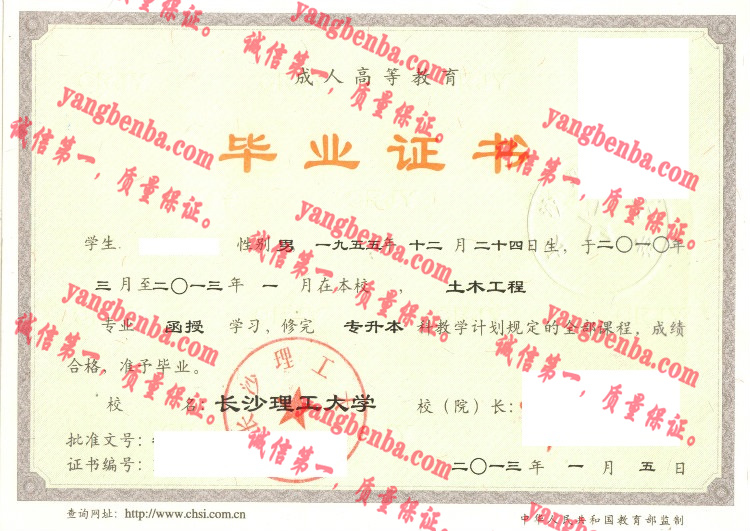 成人高等教育
毕业证书
学生 性别 男 一九五五年 十二 月 二十四日生，于二〇一〇年
三 月至二〇一三年 一 月在本校 ， 土木工程
专业 函授 学习，修完 专升本 科教学计划规定的全部课程，成绩
合格，准予毕业。
校 名：长沙理工大学 校（院）长：
批准文号：
证书编号：
二〇一三 年 一 月 五 日
查询网址：http://www.chsi.com.cn
中华人民共和国教育部监制
长沙理工大
yangbenba.com
诚信第一，质量保证。
yangbenba.com
诚信第一，质量保证。
yangbenba.com
诚信第一，质量保证。
yangbenba.com
诚信第一，质量保证。
yangbenba.com
诚信第一，质量保证。
yangbenba.com
诚信第一，质量保证。
yangbenba.com
诚信第一，质量保证。
yangbenba.com